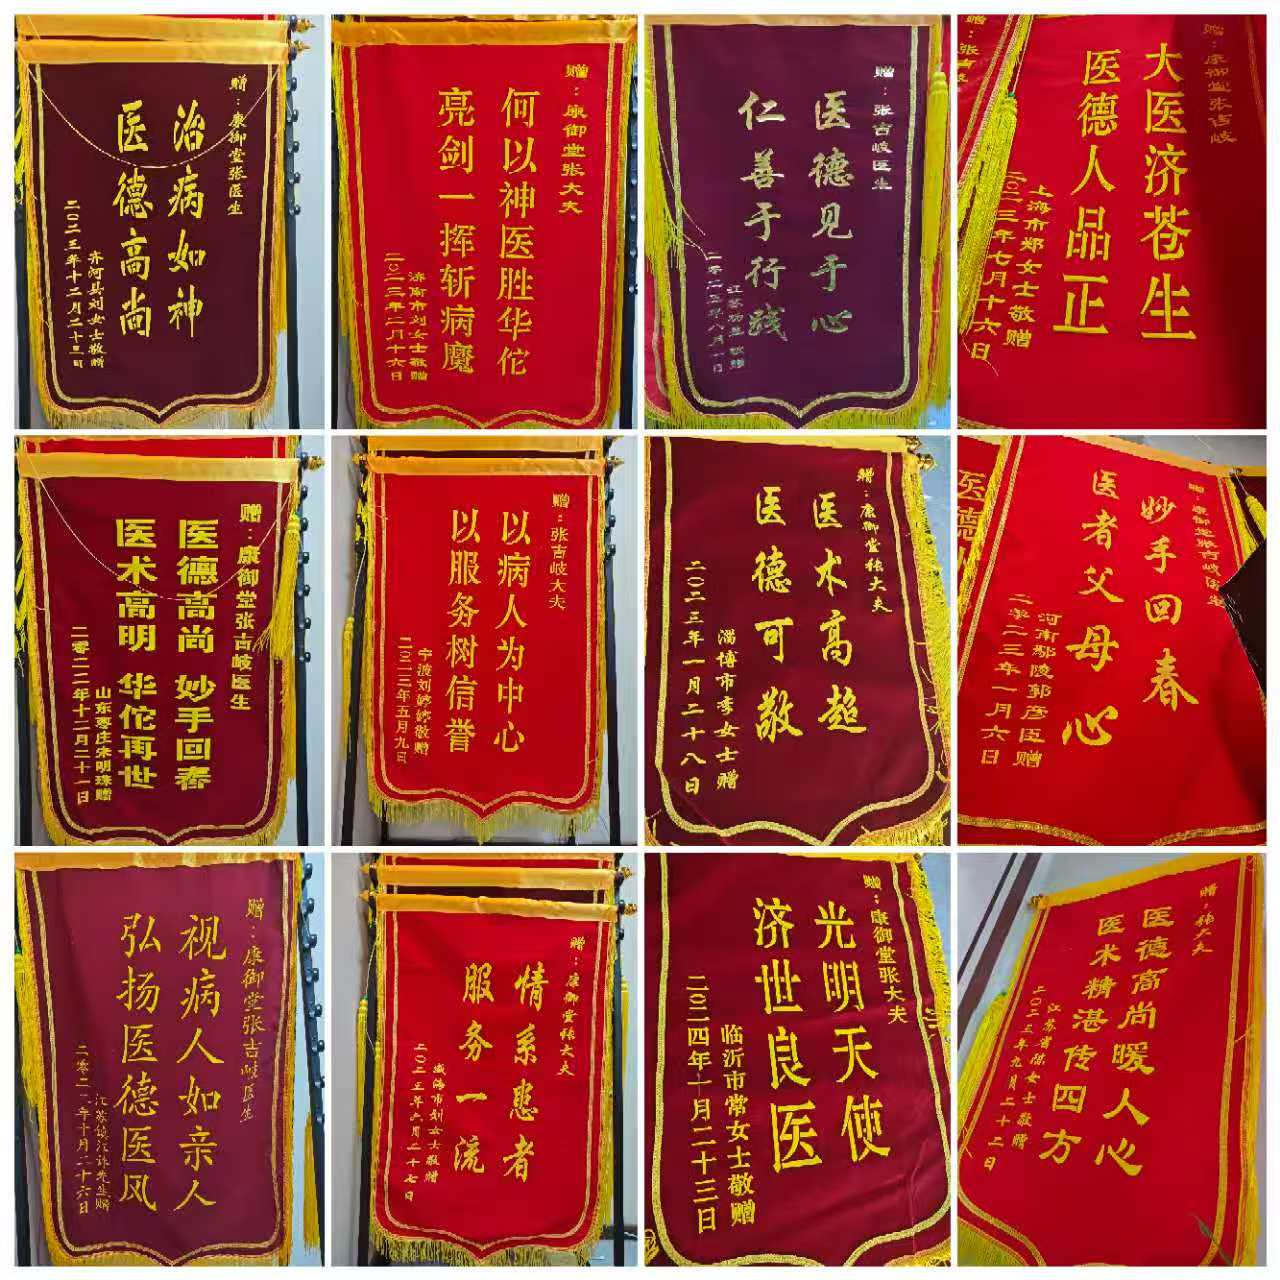 赠：康御堂张医生
治病如神
医德高尚
齐河县刘女士敬赠
二〇二三年十二月二十三日
赠：康御堂张大夫
何以神医胜华佗
亮剑一挥斩病魔
济南市刘女士敬赠
二〇二三年二月十六日
赠：张吉岐医生
医德见于心
仁善于行践
赠：康御堂张吉岐
大医济苍生
医德人品正
上海市郑女士敬赠
二〇二三年七月十六日
赠：张吉
赠：康御堂张吉岐医生
医德高尚 妙手回春
医术高明 华佗再世
山东枣庄宋明珠赠
二零二二年十二月二十一日
赠：张吉岐大夫
以病人为中心
以服务树信誉
宁波刘婷婷敬赠
二〇二三年五月九日
赠：康御堂张大夫
医术高超
医德可敬
淄博市李女士赠
二〇二三年一月二十八日
赠：康御堂张吉岐医生
妙手回春
医者父母心
河南鄢陵郭彦臣赠
二零二三年一月六日
医德人
赠：康御堂张吉岐医生
视病人如亲人
弘扬医德医风
赠：康御堂张大夫
情系患者
服务一流
威海市刘女士敬赠
二〇二三年六月二十七日
赠：康御堂张大夫
光明天使
济世良医
临沂市常女士敬赠
二〇二四年十月二十三日
赠：张大夫
医德高尚暖人心
医术精湛传四方
江苏省陈女士敬赠
二〇二三年九月二十二日